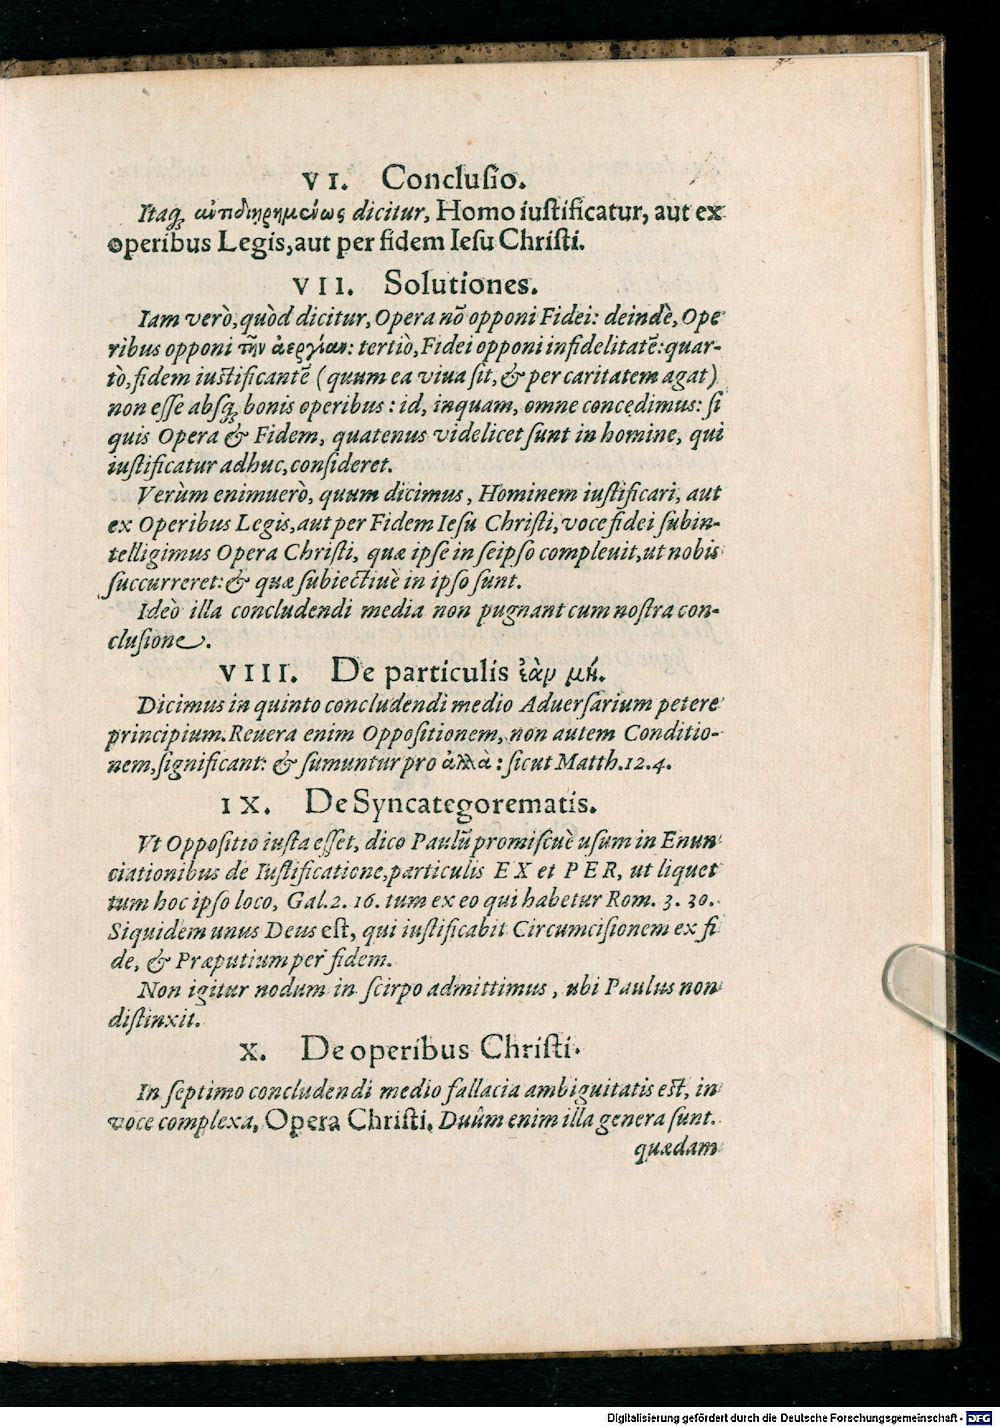 VI. Conclusio.
Itaq; ἀντιδιῃρημένως dicitur, Homo iustificatur, aut ex
operibus Legis, aut per fidem Iesu Christi.
VII. Solutiones.
Iam verò, quòd dicitur, Opera nõ opponi Fidei: deindè, Ope
ribus opponi τὴν ἀεργίαν: tertiò, Fidei opponi infidelitatẽ: quar-
tò, fidem iustificantẽ (quum ea viua sit, & per caritatem agat)
non esse absq; bonis operibus: id, inquam, omne concedimus: si
quis Opera & Fidem, quatenus videlicet sunt in homine, qui
iustificatur adhuc, consideret.
Verùm enimuerò, quum dicimus, Hominem iustificari, aut
ex Operibus Legis, aut per Fidem Iesu Christi, voce fidei subin-
telligimus Opera Christi, quæ ipse in seipso compleuit, ut nobis
succurreret: & quæ subiectiuè in ipso sunt.
Ideò illa concludendi media non pugnant cum nostra con-
clusione.
VIII. De particulis ἐὰν μή.
Dicimus in quinto concludendi medio Aduersarium petere
principium. Reuera enim Oppositionem, non autem Conditio-
nem, significant: & sumuntur pro ἀλλὰ: sicut Matth. 12.4.
IX. De Syncategorematis.
Vt Oppositio iusta esset, dico Paulũ promiscuè usum in Enun
ciationibus de Iustificatione, particulis EX et PER, ut liquet
tum hoc ipso loco, Gal. 2. 16. tum ex eo qui habetur Rom. 3. 30.
Siquidem unus Deus est, qui iustificabit Circumcisionem ex fi
de, & Præputium per fidem.
Non igitur nodum in scirpo admittimus, ubi Paulus non
distinxit.
X. De operibus Christi.
In septimo concludendi medio fallacia ambiguitatis est, in
voce complexa, Opera Christi. Duûm enim illa genera sunt.
quædam
Digitalisierung gefördert durch die Deutsche Forschungsgemeinschaft - DFG